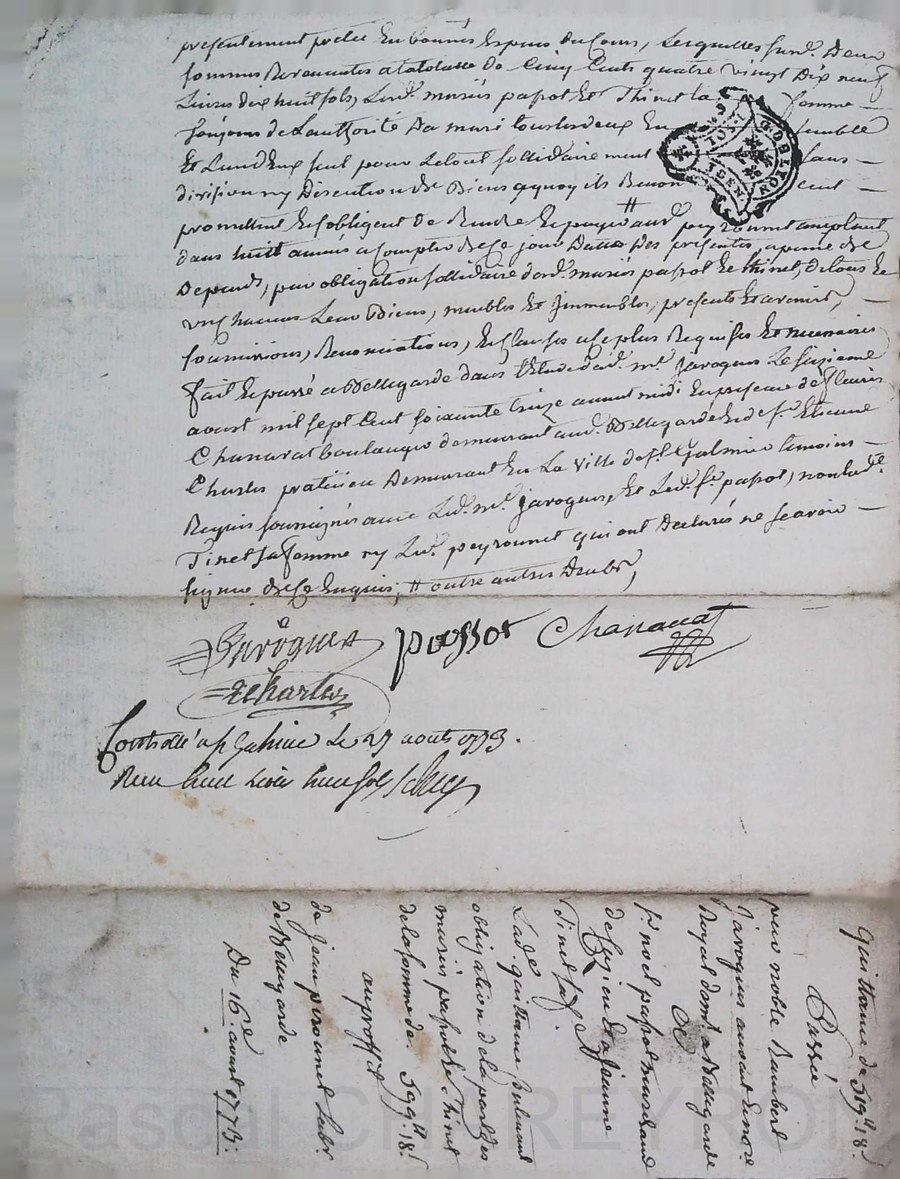 presentement pretée En bonnes Especes du Cours, Lesquelles susd. Deux
sommes Revenantes a la totalle de Cinq Cents quatre vingt Dix neuf
Livres dix huit sols, Lesd. mariés passot Et Thinet la femme
de L'authorité Da mari tous les deux En semble
Et Lun d'Eux seul pour Le tout sollidairement sans
division ny Discution de Biens a quoy ils Renon cent
promettent Et s'obligent de Rendre Et payer aud. peyrounet
dans huit années a Compter de Ce jour Datte Des présentes, a peine de
Depends, par obligation sollidaire desd. mariés passot Et thinet, de tous Et
un chacuns Leurs Biens, meubles Et Jmmeubles, presents Et avenirs,
soumissions, Renonciations, Et Clauses a Ce plus Requises Et necessaires
fait Et passé a Bellegarde dans L'Etude dud. me. Javogues Le seizieme
aoust mil sept Cent soixante treize avant midi En presence de
Chanavat boulanger demeurant aud. Bellegarde Et de sr. Etienne
Charles praticien Demeurant En La ville de st Galmier temoins
Requis soussignés avec Led. me. Javogues, Et Led. sr. passot, non lad.
Tinet sa femme ny Led. peyrounet qui ont Declarés ne scavoir
signer de Ce Enquis, # outre autres Deubs,
Javogues passot Chanavat
E Charles
Controllé a st Galmier Le 27 aout 1773.
Reçu
quittance de 519ll 18s
Passée
pour noble Rambert
Javogues avocat Et nore
Royal domt. a Bellegarde
De
sr. noel passot marchand
Et Jeanne
Tinet sa fe.
Lad. quittance
obligation de la part des
mariés passot Et Thinet
de la somme de 599ll 18s
au proffit
de Jean peirounet Labr.
de Bellegarde
Du 16e. aoust 1773.
Pascal CHAREYRON